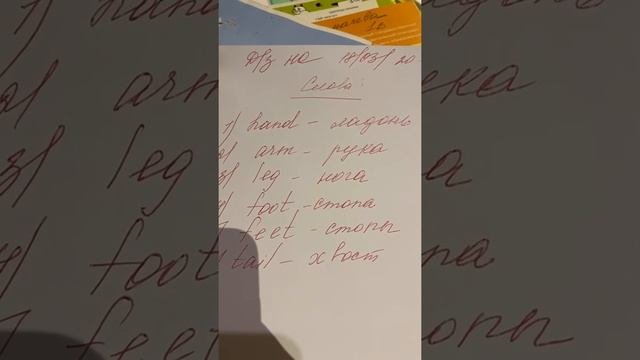 Д/З на 18/03/20
Слова:
1) hand - ладонь
2) arm - рука
3) leg - нога
4) foot - стопа
feet - стопы
tail - хвост